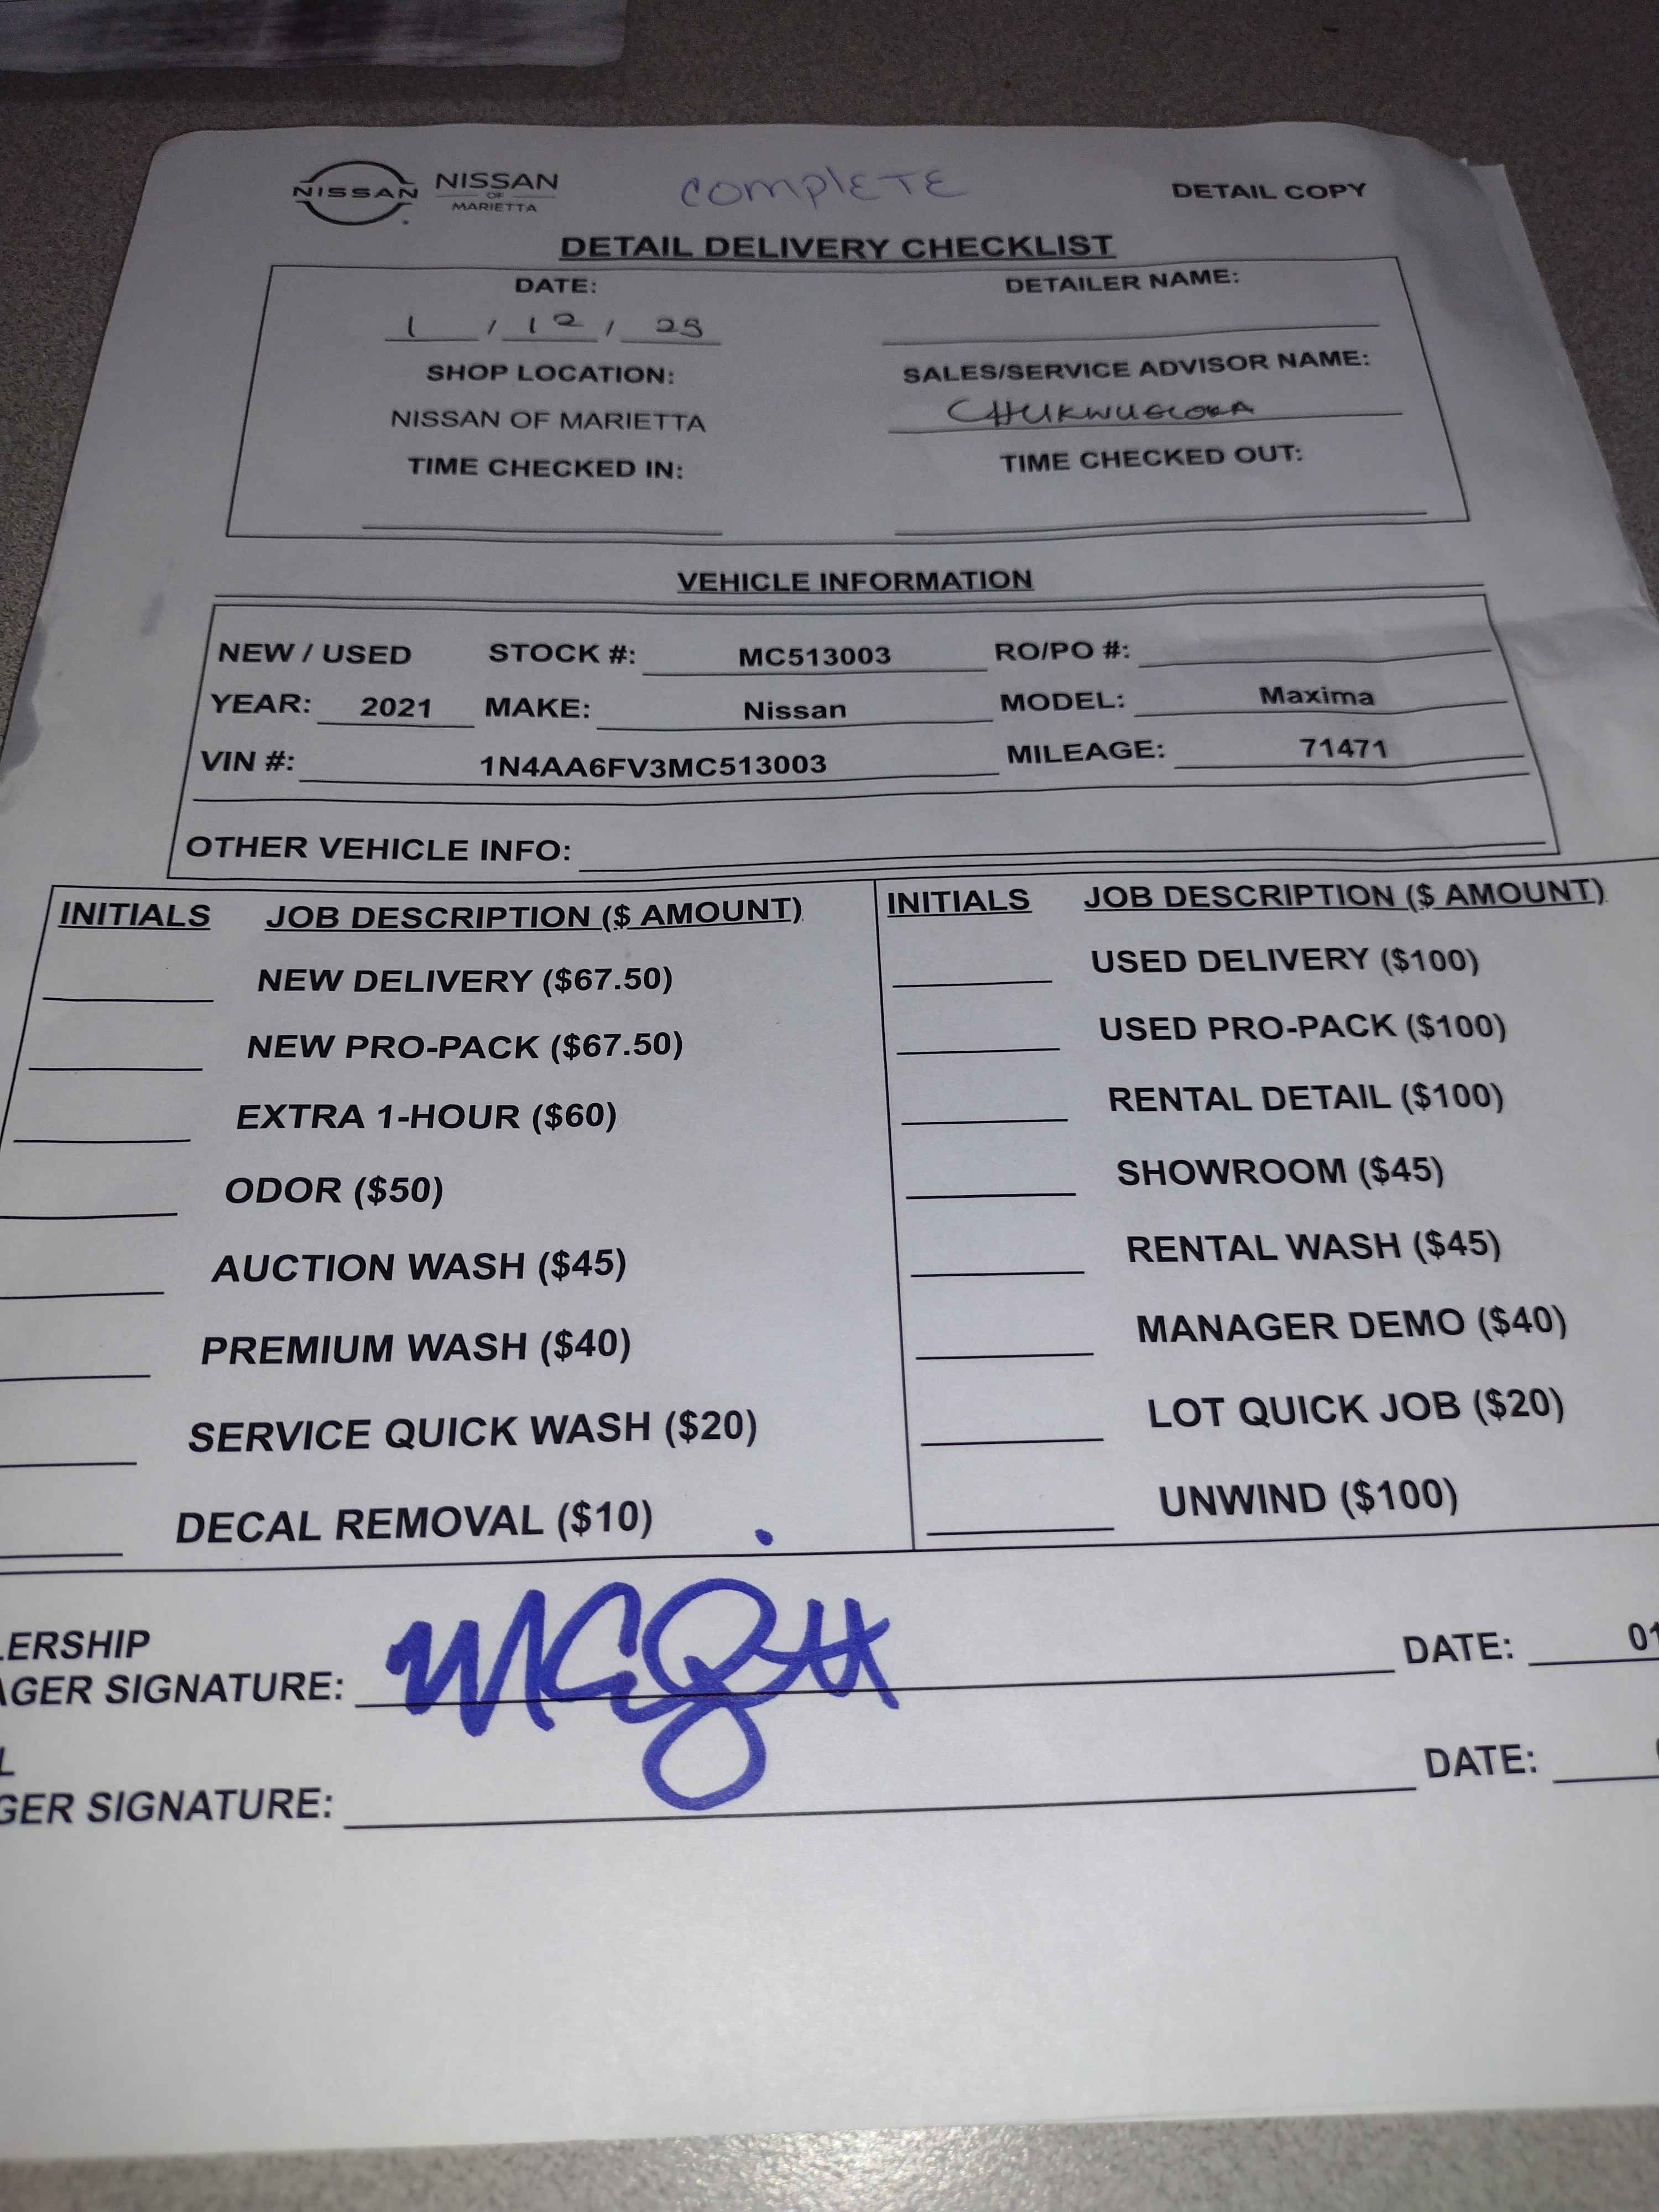 NISSAN NISSAN OF MARIETTA complETE DETAIL COPY
DETAIL DELIVERY CHECKLIST
DATE: DETAILER NAME:
1 / 12 / 25
SHOP LOCATION: SALES/SERVICE ADVISOR NAME:
NISSAN OF MARIETTA
TIME CHECKED IN: TIME CHECKED OUT:
VEHICLE INFORMATION
NEW / USED STOCK #: MC513003 RO/PO #:
YEAR: 2021 MAKE: Nissan MODEL: Maxima
VIN #: 1N4AA6FV3MC513003 MILEAGE: 71471
OTHER VEHICLE INFO:
INITIALS JOB DESCRIPTION ($ AMOUNT) INITIALS JOB DESCRIPTION ($ AMOUNT)
NEW DELIVERY ($67.50) USED DELIVERY ($100)
NEW PRO-PACK ($67.50) USED PRO-PACK ($100)
EXTRA 1-HOUR ($60) RENTAL DETAIL ($100)
ODOR ($50) SHOWROOM ($45)
AUCTION WASH ($45) RENTAL WASH ($45)
PREMIUM WASH ($40) MANAGER DEMO ($40)
SERVICE QUICK WASH ($20) LOT QUICK JOB ($20)
DECAL REMOVAL ($10) UNWIND ($100)
LERSHIP
AGER SIGNATURE: DATE: 01
L
GER SIGNATURE: DATE: